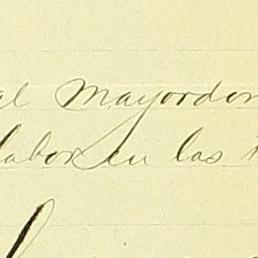 al Mayordom
labor en las